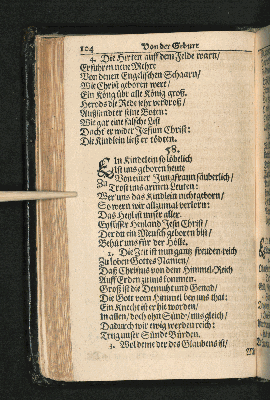 104 Von der Geburt
4. Die Hirten auff dem Felde warn/
Erfuhren newe Mehre
Von denen Engelischen Schaarn/
Wie Christ geboren were/
Ein König übr alle König groß.
Herods die Rede sehr verdroß/
Außsandt er seine Boten:
Wie gar eine falsche List
Dacht er wider Jesum Christ:
Die Kindlein ließ er tödten.
58.
Ein Kindelein so löbelich
Ist uns geboren heute
Von einer Jungfrawn säuberlich/
Zu Trost uns armen Leuten:
Wer uns das Kindlein nicht geborn/
So wern wir allzumal verlorn:
Das Heyl ist unser aller.
Ey süsser Heyland Jesu Christ/
Der du ein Mensch geboren bist/
Behüt uns für der Hölle.
2. Die Zeit ist nun gantz freuden-reich
Zu loben Gottes Namen/
Daß Christus von dem Himmel-Reich
Auff Erden zu uns kommen.
Groß ist die Demuth und Genad/
Die Gott vom Himmel bey uns that:
Ein Knecht ist er hie worden/
In allen/ doch ohn Sünd/ uns gleich/
Dadurch wir ewig werden reich:
Trug unser Sünde Bürden.
3. Wol deme der des Glaubens ist/